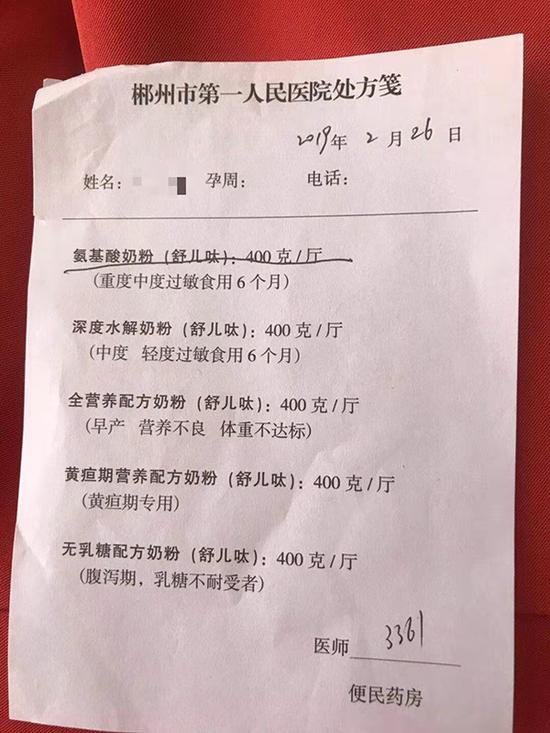 郴州市第一人民医院处方笺
2019年 2 月 26 日
姓名： 孕周： 电话：
氨基酸奶粉（舒儿呔）：400 克/厅
（重度中度过敏食用6个月）
深度水解奶粉（舒儿呔）：400 克/厅
（中度 轻度过敏食用6个月）
全营养配方奶粉（舒儿呔）：400 克/厅
（早产 营养不良 体重不达标）
黄疸期营养配方奶粉（舒儿呔）：400 克/厅
（黄疸期专用）
无乳糖配方奶粉（舒儿呔）：400 克/厅
（腹泻期，乳糖不耐受者）
医师 3361
便民药房